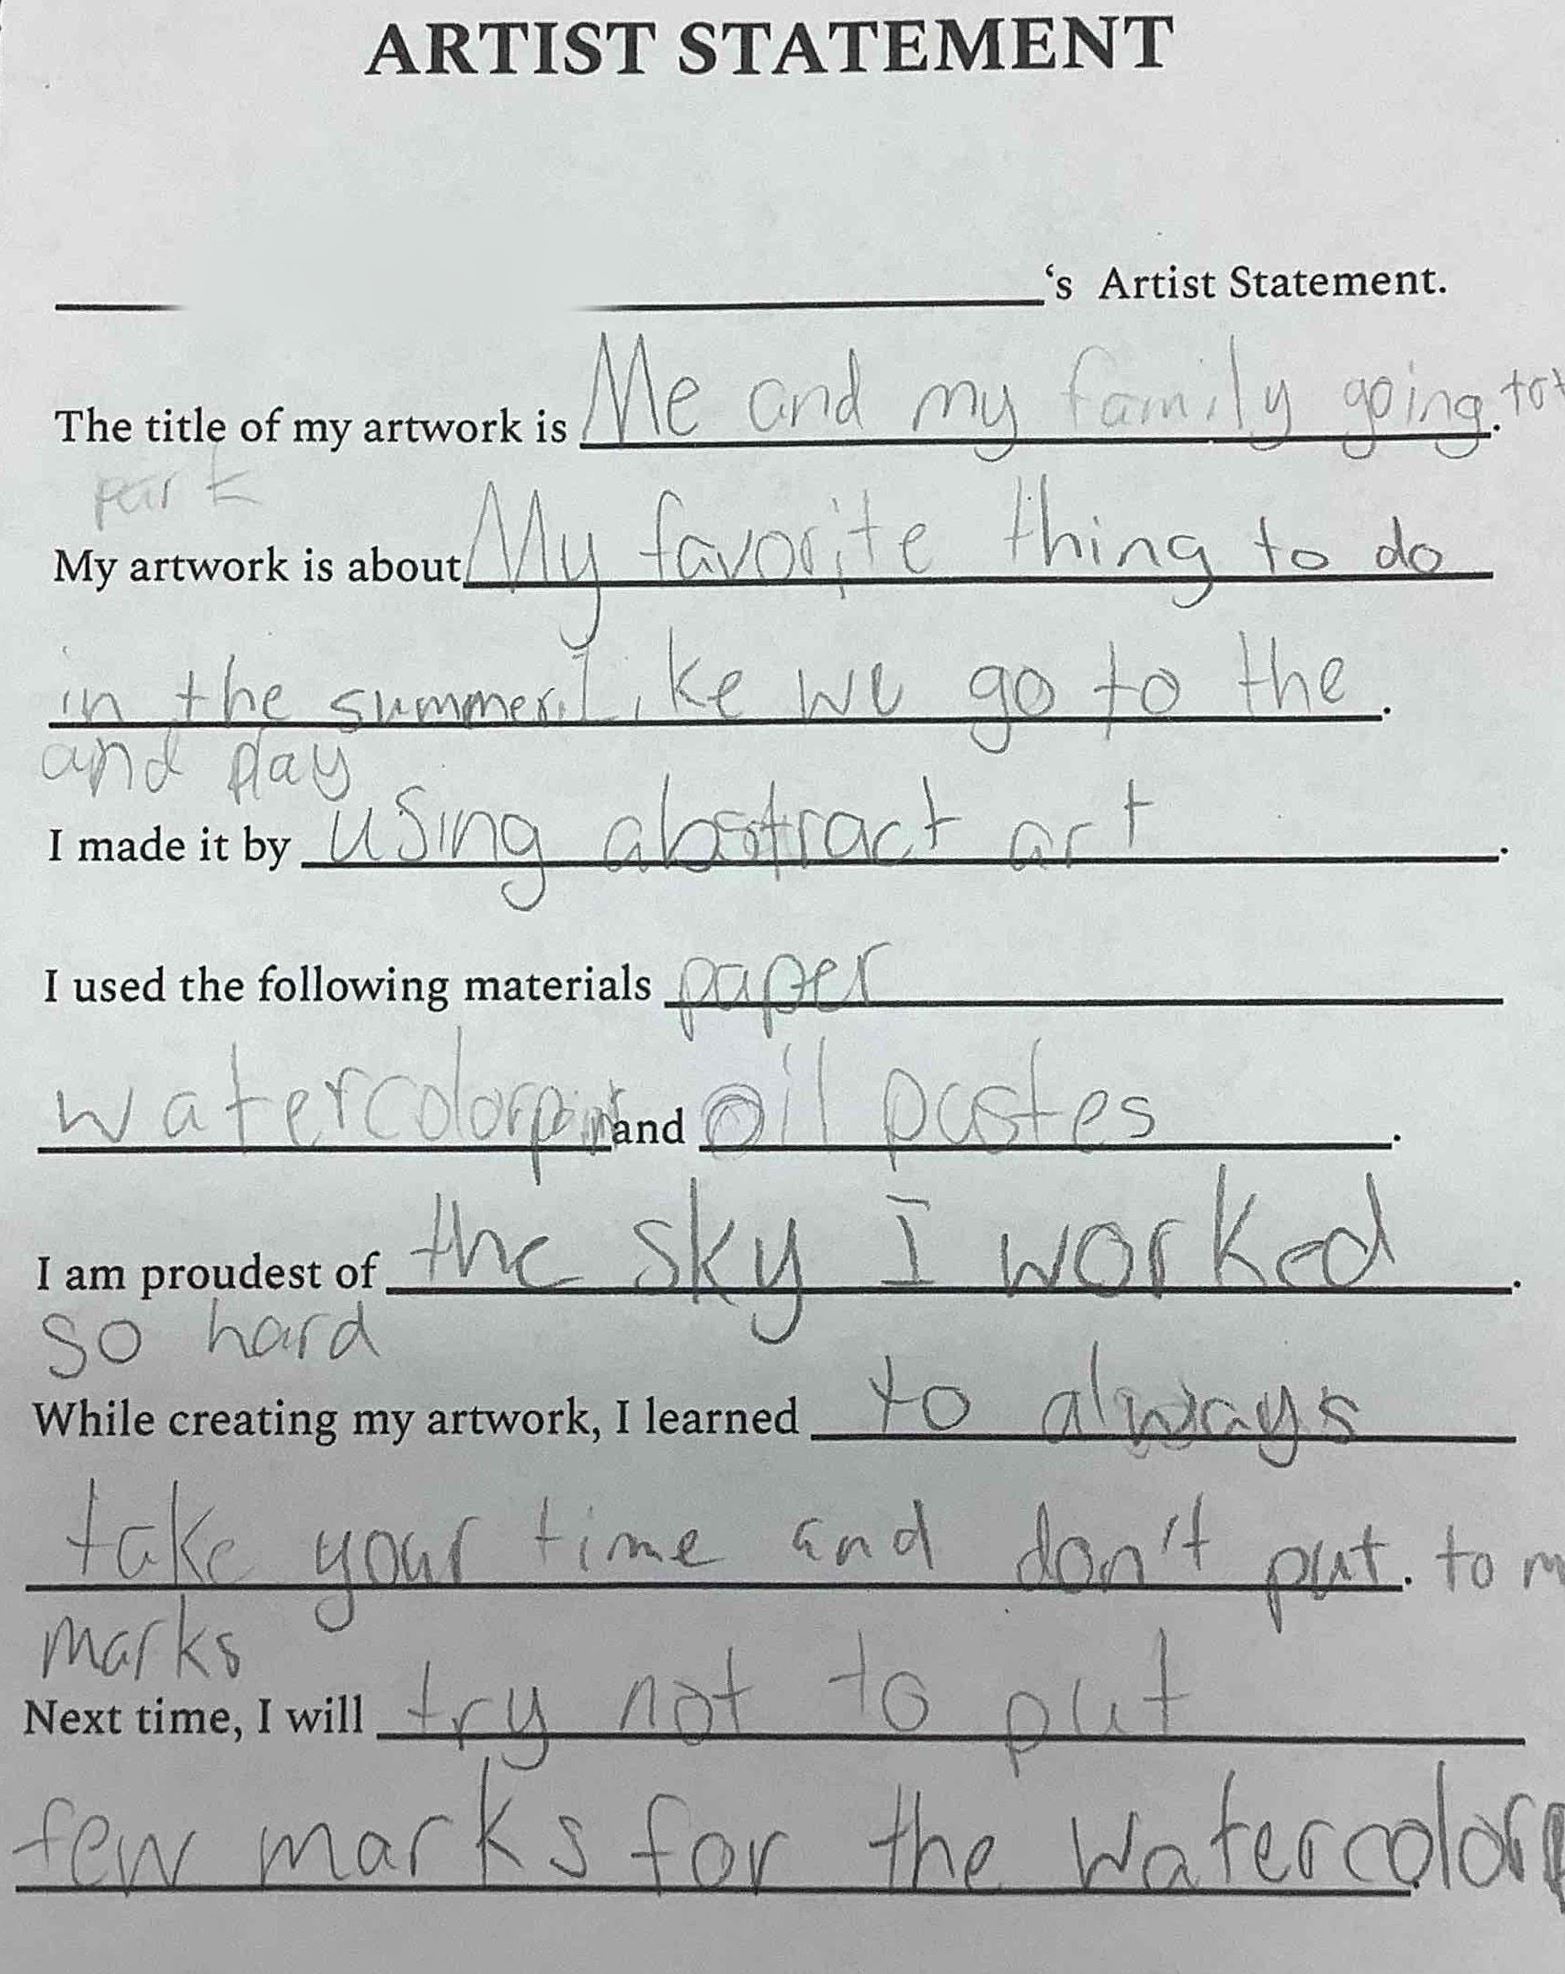 ARTIST STATEMENT
's Artist Statement.
The title of my artwork is Me and my family going. to
park
My artwork is about My favorite thing to do
in the summer. Like we go to the.
and play
I made it by using abstract art.
I used the following materials paper
watercolor paint and oil pastes.
I am proudest of the sky I worked.
so hard
While creating my artwork, I learned to always
take your time and don't put. to
marks
Next time, I will try not to put
few marks for the watercolor